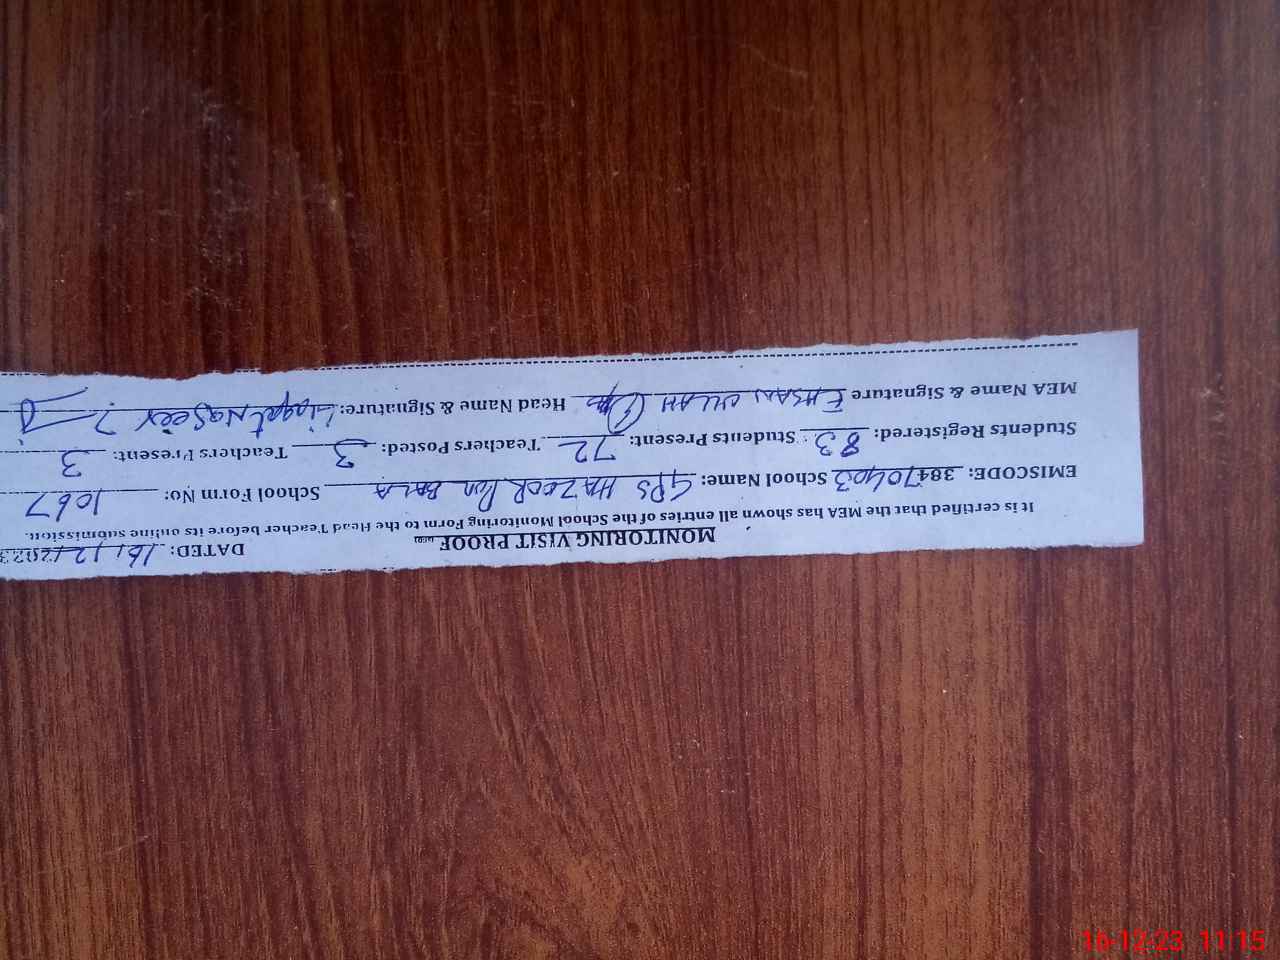 MONITORING VISIT PROOF DATED: 16/12/2023
It is certified that the MEA has shown all entries of the School Monitoring Form to the Head Teacher before its online submission.
EMISCODE: 38470403 School Name: GPS HAZOOR PUR BALA School Form No: 1067
Students Registered: 83 Students Present: 72 Teachers Posted: 3 Teachers Present: 3
MEA Name & Signature EHSAN ULLAH Head Name & Signature: Liaqat Naseer
16-12-23 11:15